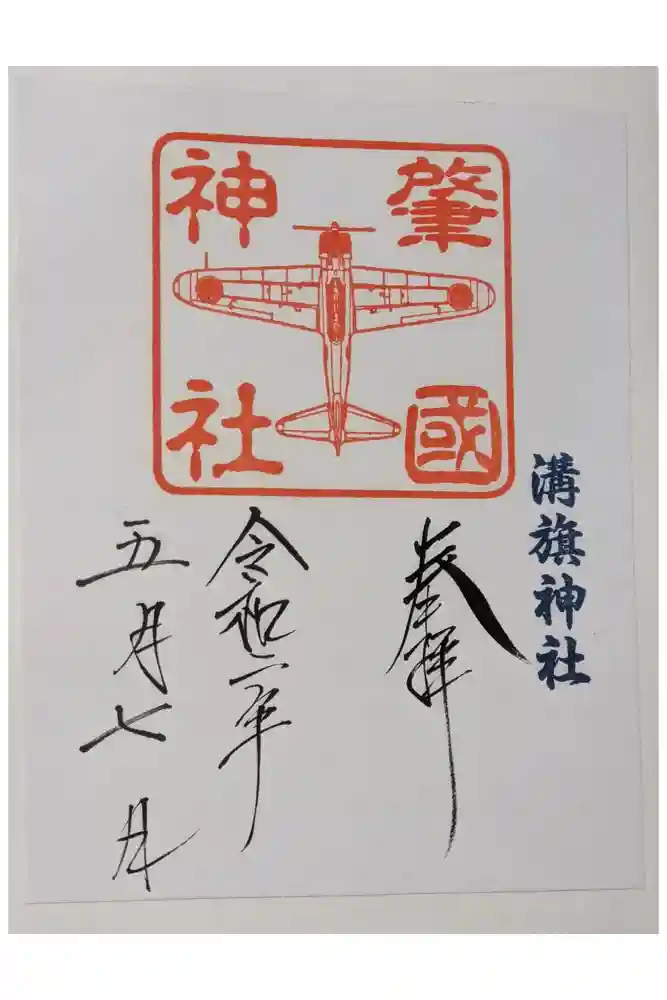 肇國
神社
溝旗神社
奉拝
令和二年
五月七月